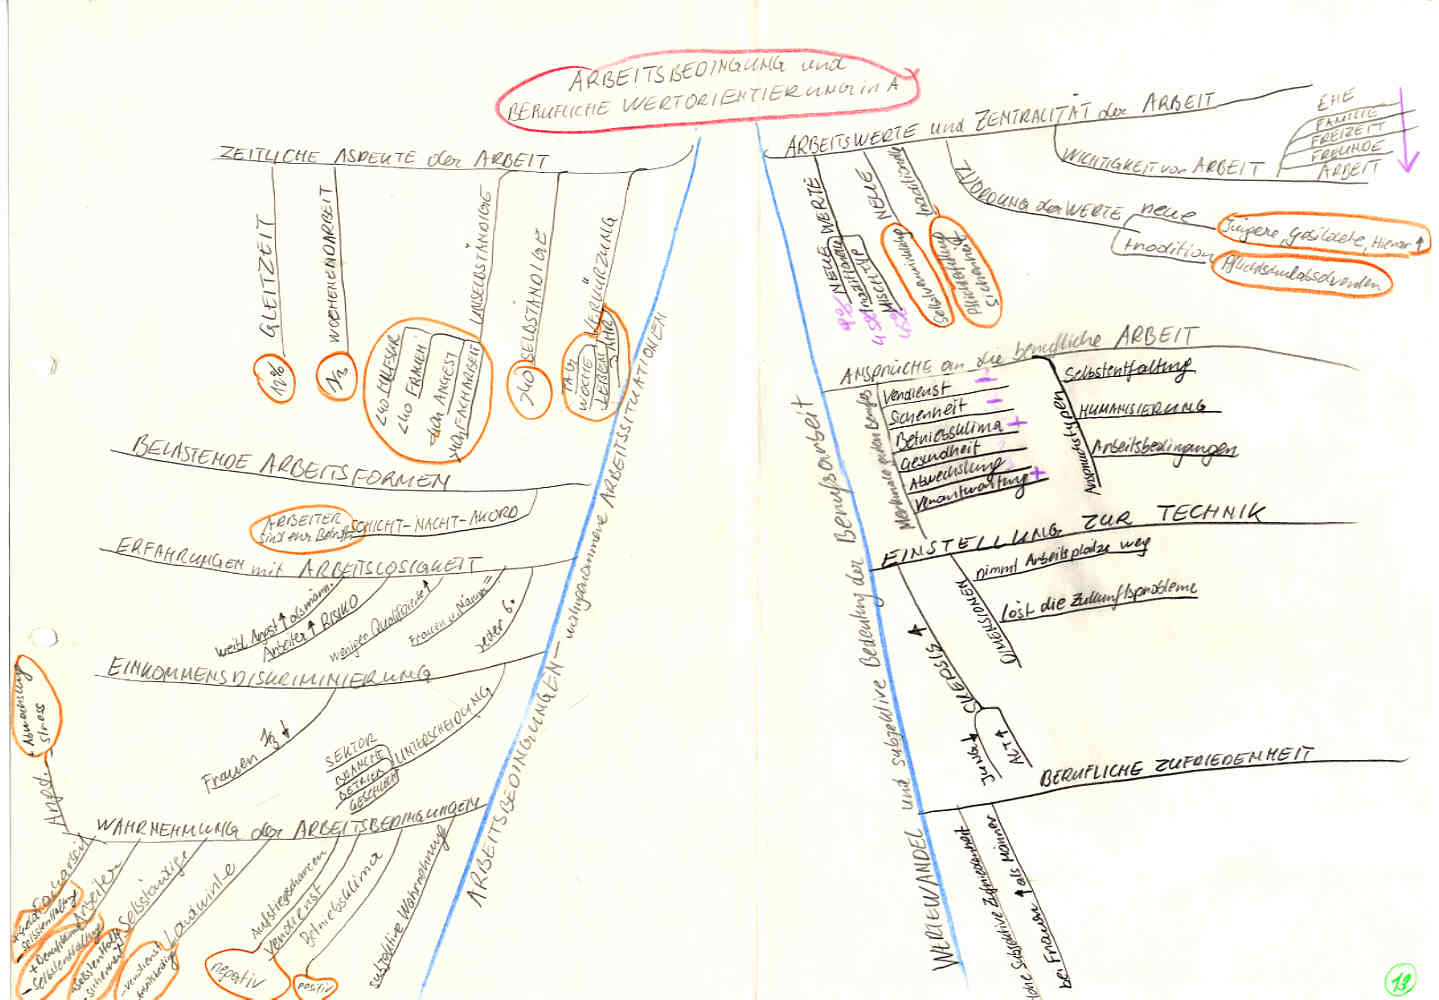 ARBEITSBEDINGUNG und
BERUFLICHE WERTORIENTIERUNG in A
ZEITLICHE ASPEKTE der ARBEIT
GLEITZEIT
12%
WOCHENENDARBEIT
1/3
UNSELBSTÄNDIGE
<40 FRAUEN
FACHARBEIT
SELBSTÄNDIGE
>40
VERKÜRZUNG
TAG
WOCHE
LEBEN
JAHR
BELASTENDE ARBEITSFORMEN
ARBEITER
SCHICHT-NACHT-AKORD
ERFAHRUNGEN mit ARBEITSLOSIGKEIT
weibl. Angst ↑ als männl.
Arbeiter ↑ RISIKO
weniger Qualifizierte ↑
Frauen u. Männer =
jeder 6.
EINKOMMENSDISKRIMINIERUNG
Frauen 1/3 ↓
UNTERSCHEIDUNG
SEKTOR
BRANCHE
BETRIEB
GESCHLECHT
WAHRNEHMUNG der ARBEITSBEDINGUNGEN
Angst.
+ Abwechslung
Stress
Facharbeit
Selbstentfaltung
Arbeiter
+ Betriebsklima
- Selbstentfaltung
Selbständige
Selbstentfalt
Sicherheit
Landwirte
- Verdienst
Aufstiegschancen
Verdienst
negativ
Betriebsklima
positiv
subjektive Wahrnehmung
ARBEITSBEDINGUNGEN - wahrgenommene ARBEITSSITUATIONEN
ARBEITSWERTE und ZENTRALITÄT der ARBEIT
NEUE WERTE
traditionelle
MISCHTYP
NEUE
Selbstverwirklichung
traditionelle
Pflichterfüllung
Sicherheit
ZUORDNUNG der WERTE
neue
Jüngere, Gebildete, Hierar ↑
tradition
Pflichtschulabsolventen
WICHTIGKEIT von ARBEIT
EHE
FAMILIE
FREIZEIT
FREUNDE
ARBEIT
ANSPRÜCHE an die berufliche ARBEIT
Merkmale guten Berufes
Verdienst
Sicherheit -
Betriebsklima +
Gesundheit
Abwechslung
Verantwortung +
Anspruchstypen
Selbstentfaltung
HUMANISIERUNG
Arbeitsbedingungen
EINSTELLUNG ZUR TECHNIK
DIMENSIONEN
nimmt Arbeitsplätze weg
löst die Zukunftsprobleme
SKEPSIS ↑
ALT ↑
BERUFLICHE ZUFRIEDENHEIT
hohe subjektive Zufriedenheit
bei Frauen ↑ als Männer
WERTEWANDEL und subjektive Bedeutung der Berufsarbeit
13